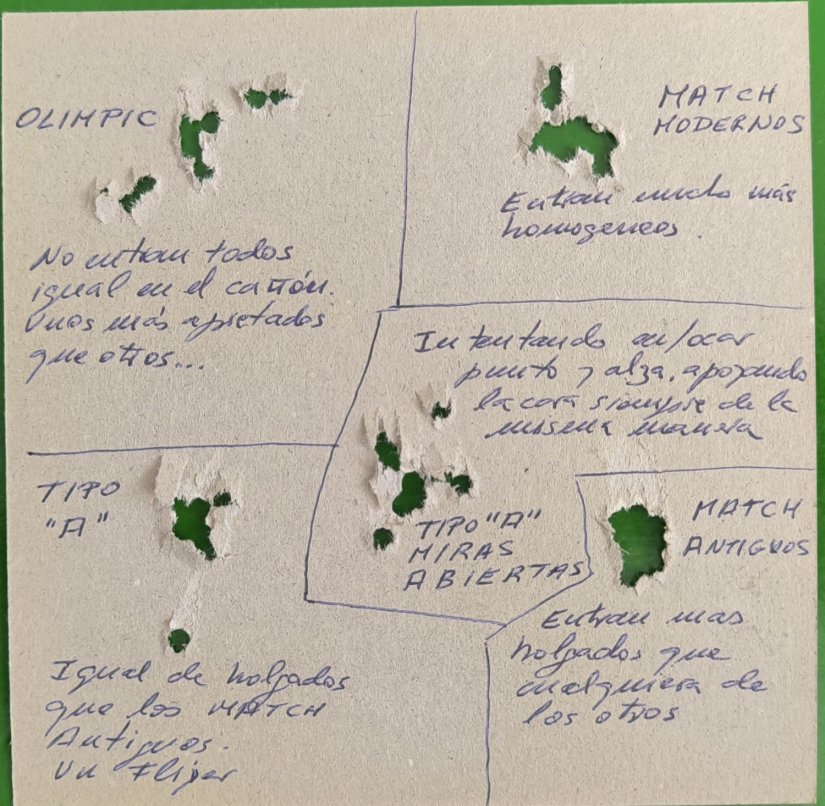 OLIMPIC
No entran todos
igual en el cañón.
Unos más apretados
que otros...
MATCH
MODERNOS
Entran mucho más
homogeneos.
Intentando enfocar
punto y alza, apoyando
la cara siempre de la
misma manera
TIPO "A"
MIRAS
ABIERTAS
TIPO
"A"
Igual de holgados
que los MATCH
Antiguos.
Un Fliper
MATCH
ANTIGUOS
Entran mas
holgados que
cualquiera de
los otros